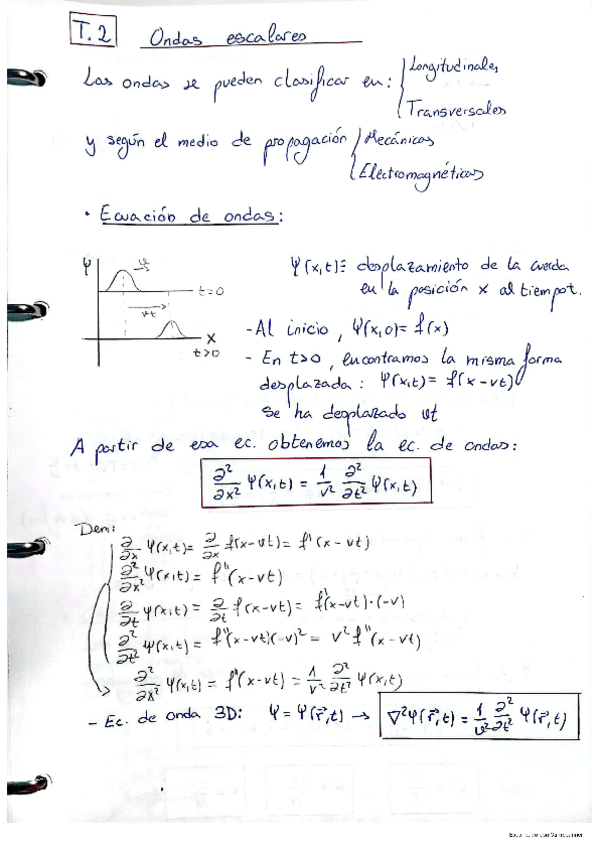 T.2 Ondas escalares
Las ondas se pueden clasificar en: { Longitudinales
Transversales
y según el medio de propagación { Mecánicas
Electromagnéticas
• Ecuación de ondas:
Ψ v t=0
vt x t>0
Ψ(x,t) ≡ desplazamiento de la cuerda
en la posición x al tiempo t.
- Al inicio, Ψ(x,0) = f(x)
- En t>0, encontramos la misma forma
desplazada: Ψ(x,t) = f(x-vt)
Se ha desplazado vt
A partir de esa ec. obtenemos la ec. de ondas:
∂²/∂x² Ψ(x,t) = 1/v² ∂²/∂t² Ψ(x,t)
Dem:
∂/∂x Ψ(x,t) = ∂/∂x f(x-vt) = f'(x-vt)
∂²/∂x² Ψ(x,t) = f''(x-vt)
∂/∂t Ψ(x,t) = ∂/∂t f(x-vt) = f'(x-vt)·(-v)
∂²/∂t² Ψ(x,t) = f''(x-vt)(-v)² = v² f''(x-vt)
∂²/∂x² Ψ(x,t) = f''(x-vt) = 1/v² ∂²/∂t² Ψ(x,t)
- Ec. de onda 3D: Ψ = Ψ(r⃗,t) → ∇²Ψ(r⃗,t) = 1/v² ∂²/∂t² Ψ(r⃗,t)